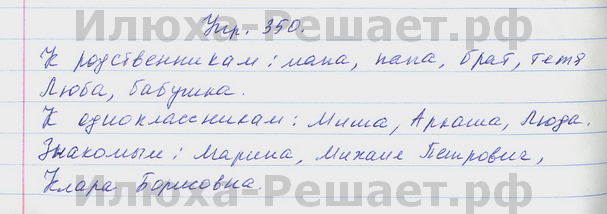 Илюха-Решает.рф
Упр. 350.
К родственникам: мама, папа, брат, тётя
Люба, бабушка.
К одноклассникам: Миша, Аркаша, Люда.
Знакомым: Марина, Михаил Петрович,
Клара Борисовна.
Илюха-Решает.рф